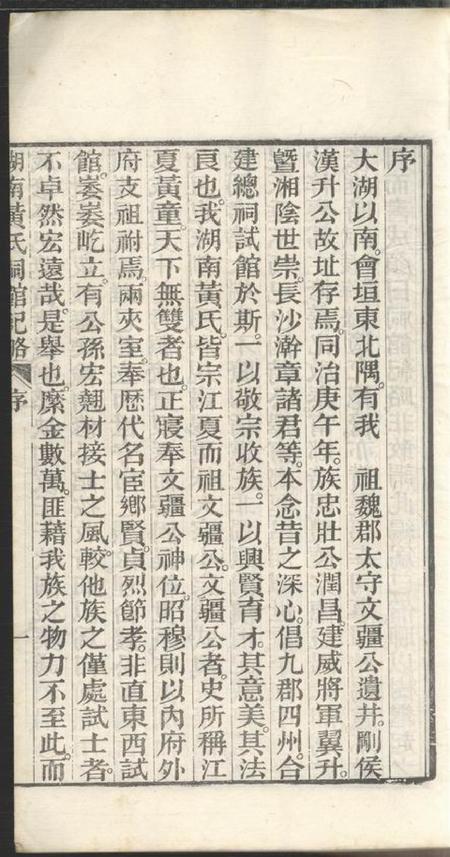 序
大湖以南。會垣東北隅。有我　祖魏郡太守文疆公遺井。剛侯
漢升公故址存焉。同治庚午年。族忠壯公潤昌。建威將軍翼升。
曁湘陰世崇。長沙澣章諸君等。本念昔之深心。倡九郡四州。合
建總祠試館於斯。一以敬宗收族。一以興賢育才。其意美。其法
良也。我湖南黃氏。皆宗江夏而祖文疆公。文疆公者。史所稱江
夏黃童。天下無雙者也。正寢奉文疆公神位。昭穆則以內府外
府支祖祔焉。兩夾室。奉歷代名宦鄉賢。貞烈節孝。非直東西試
館。崣崣屹立。有公孫宏翹材接士之風。較他族之僅處試士者。
不卓然宏遠哉。是舉也。縻金數萬。匪藉我族之物力不至此。而
湖南黃氏祠館紀略　序　一